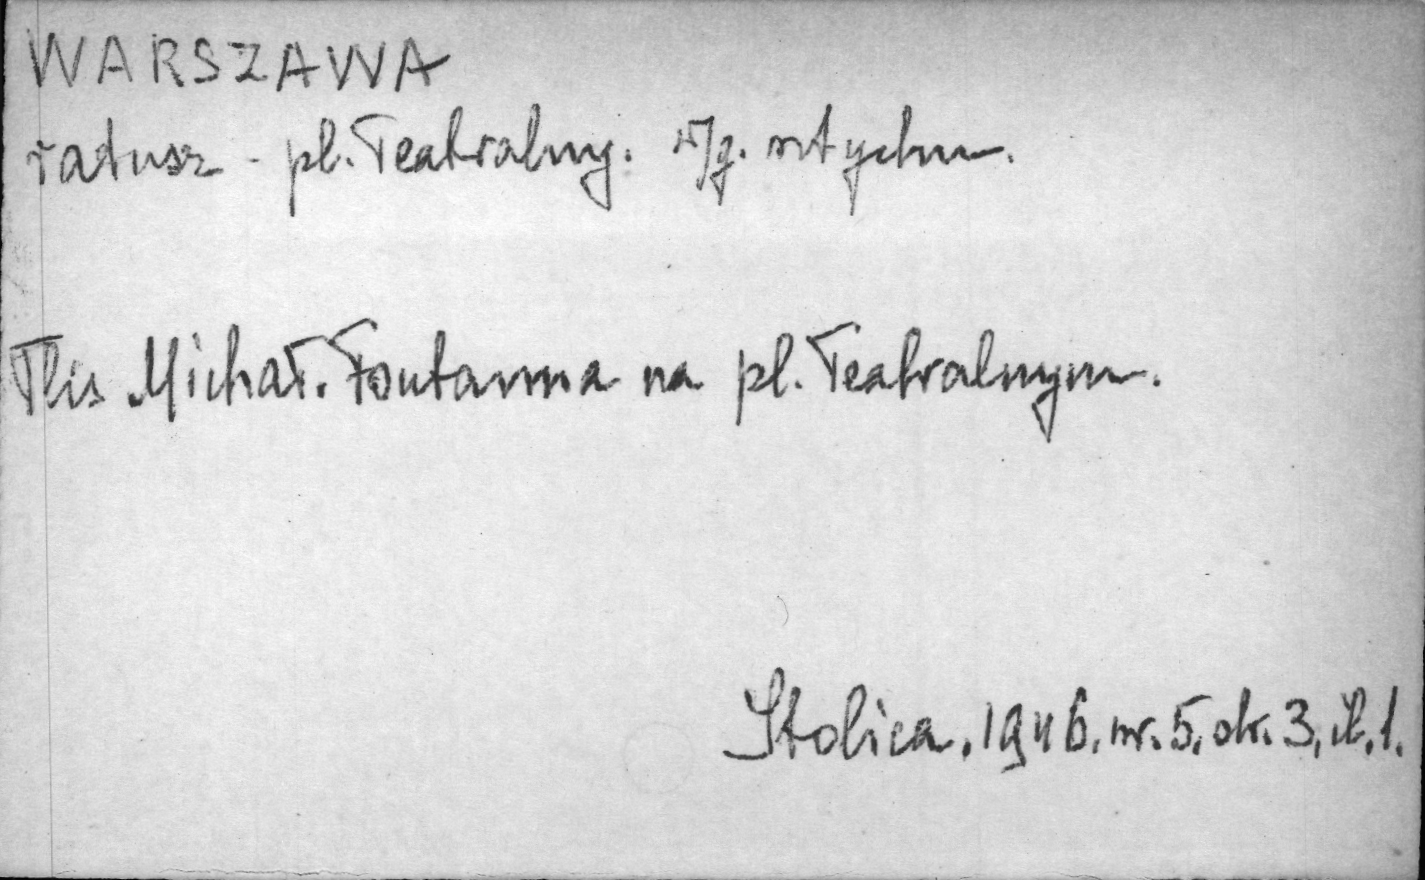 WARSZAWA
ratusz - pl. Teatralny. w/g. sztychu.
Plis Michał. Fontanna na pl. Teatralnym.
Stolica. 1946. nr. 5. str. 3, il. 1.